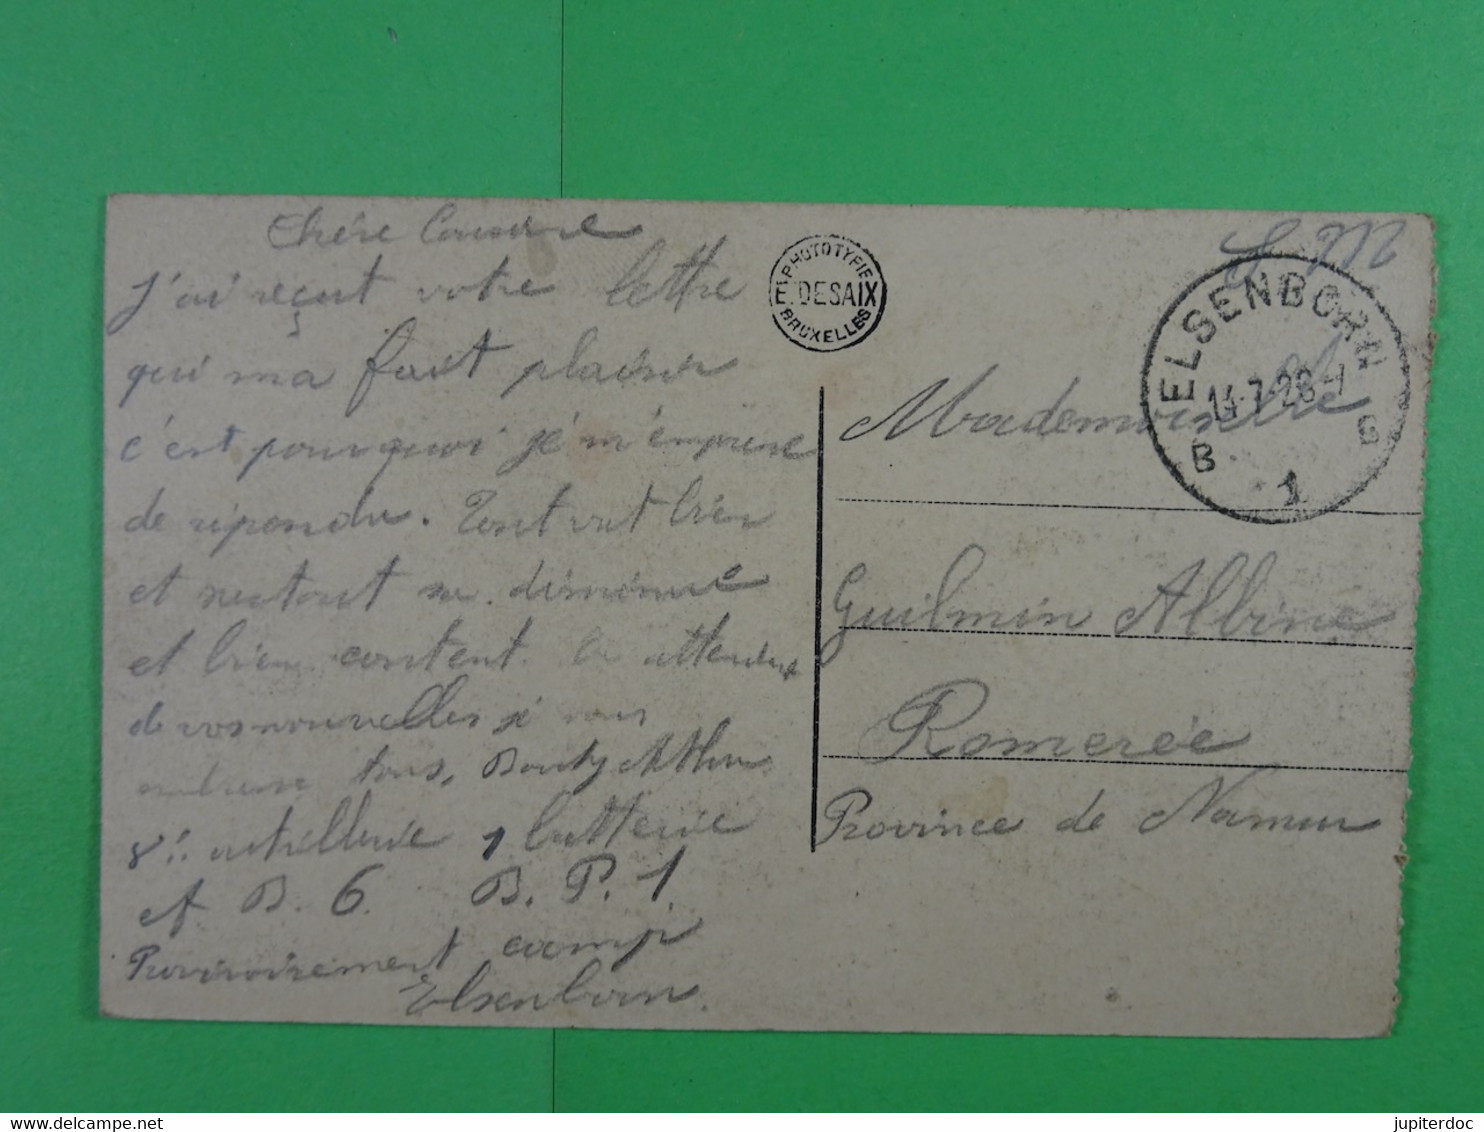 Chère Cousine
J'ai reçut votre lettre
qui ma fait plaisir
c'est pourquoi je m'emprèse
de répondre. Tout vat bien
et surtout se dimanue
et bien content. En attendant
de vos nouvelles je vous
embrase tous, Bouty Arthur
8è artillerie 1 batterie
A. B. 6. B. P. 1.
Provisoirement camp
Elsenborn.
PHOTOTYPIE
E. DESAIX
BRUXELLES
S M
ELSENBORN
14-7-28-
B 1 B
Mademoiselle
Guilmin Albine
Romerée
Province de Namur
jupiterdoc